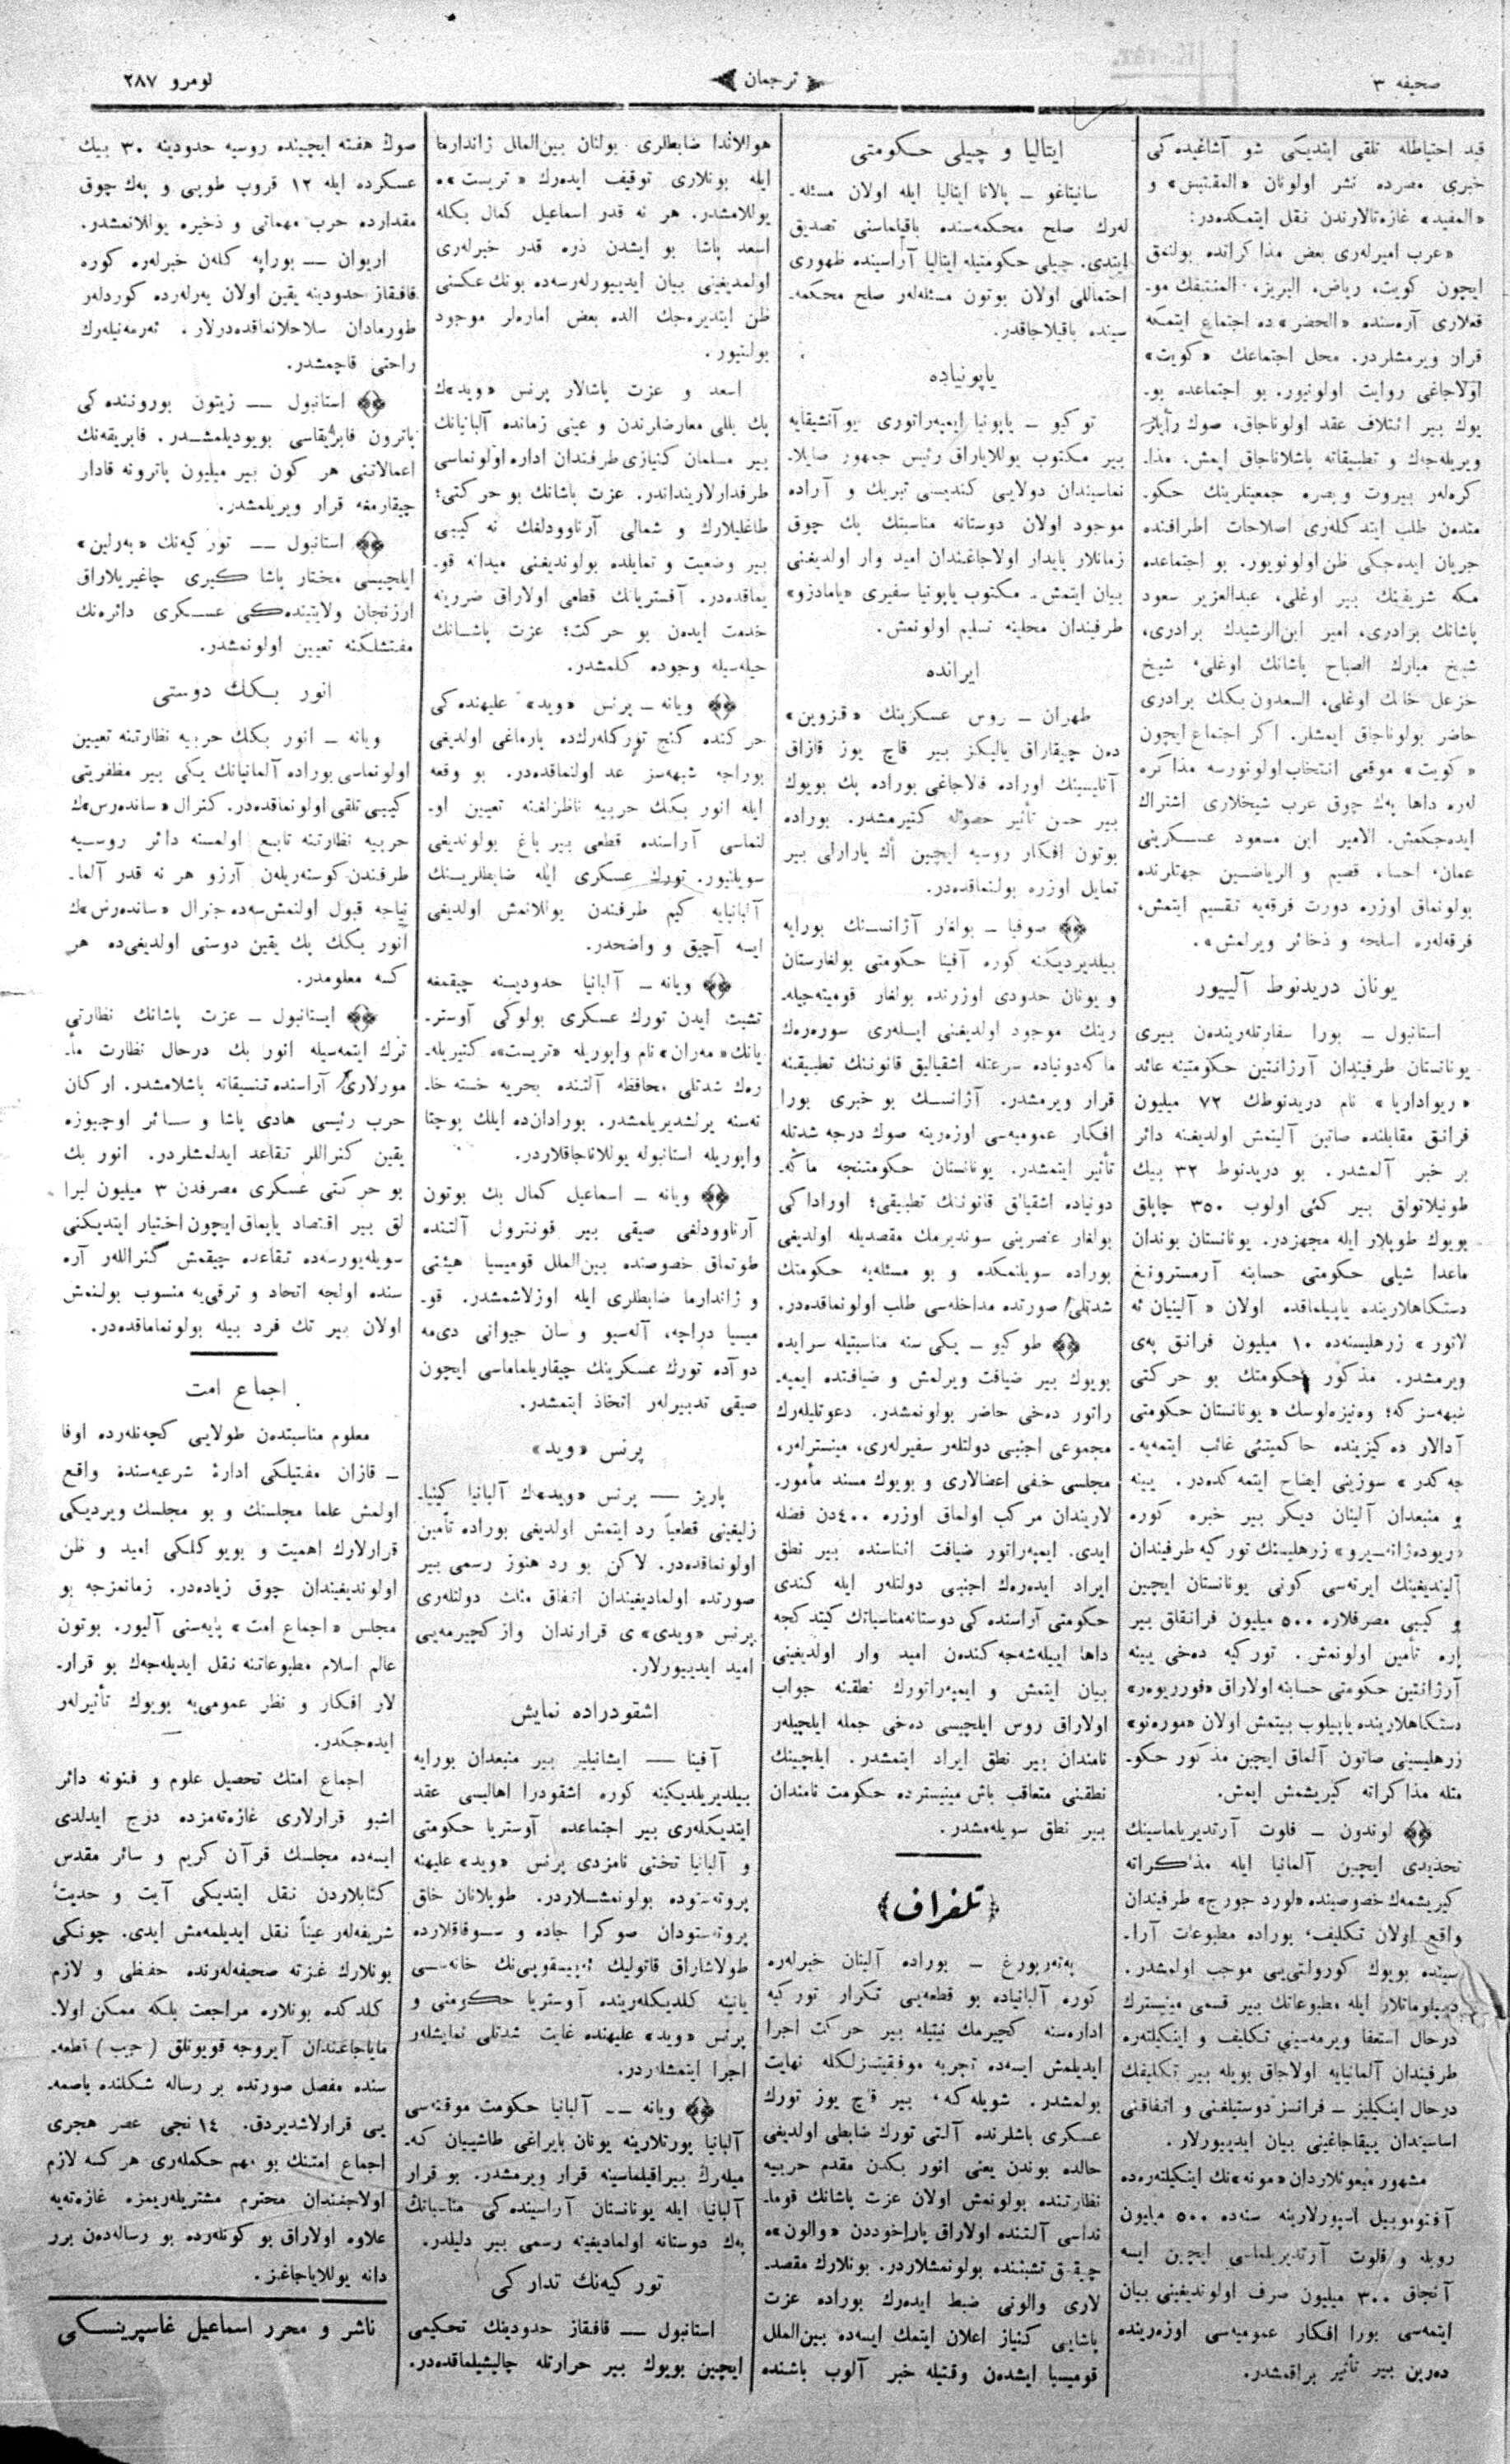 صحیفه ۳
ترجمان
نومرو ۲۸۷
قید احتیاطله تلقی ایتدیكی شو آشاغیده كی
خبری مصرده نشر اولونان «المقتبس» و
«المفید» غازه‌تالارندن نقل ایتمكده‌در:
«عرب امیرله‌ری بعض مذا كرانده بولنمق
ایچون كویت، ریاض، البریز، المنتفك مو-
قعلاری آره‌سنده «الخضر» ده اجتماع ایتمكه
قرار ویرمشلردر. محل اجتماعك «كویت»
اولاجاغی روایت اولونیور. بو اجتماعده بو-
یوك بیر ائتلاف عقد اولوناجاق، صوك رأیلر
ویریله‌جه‌ك و تطبیقاته باشلاناجاق ایمش. مذا-
كره‌لر بیروت و بصره جمعیتلرینك حكو-
متدن طلب ایتد كله‌ری اصلاحات اطرافنده
جریان ایده‌جكی ظن اولونویور. بو اجتماعده
مكه شریفینك بیر اوغلی، عبدالعزیز سعود
پاشانك برادری، امیر ابن‌الرشیدك برادری،
شیخ مبارك الصباح پاشانك اوغلی، شیخ
خزعل خانك اوغلی، السعدون بكك برادری
حاضر بولوناجاق ایمشلر. اكر اجتماع ایچون
«كویت» موقعی انتخاب اولونورسه مذا كره
لره داها په‌ك چوق عرب شیخلاری اشتراك
ایده‌جكمش. الامیر ابن مسعود عسكرینی
عمان، احساء، قصیم و الریاضین جهتلرنده
بولونماق اوزره دورت فرقه‌یه تقسیم ایتمش،
فرقه‌لره اسلحه و ذخائر ویرلمش».
یونان دریدنوط آلییور
استانبول ــ بورا سفارتله‌ریندن بیری
یونانستان طرفیندان آرژانتین حكومتینه عائد
«ریواداریا» نام دریدنوطك ۷۲ میلیون
فرانق مقابلنده صاتین آلینمش اولدیغنه دائر
بر خبر آلمشدر. بو دریدنوط ۳۲ بیك
طونیلاتولق بیر كمی اولوب ۳۵۰ چاپلق
بویوك طوپلار ایله مجهزدر. یونانستان بوندان
ماعدا شیلی حكومتی حسابنه آرمسترونغ
دستكاهلارینده یاپیلماقده اولان « آلینیان ته
لاتور » زرهلیسنه‌ده ۱۰ میلیون فرانق پەی
ویرمشدر. مذكور حكومتك بو حر كتی
شبهه‌سز كه؛ وه‌نیزه‌لوسك «یونانستان حكومتی
آدالار ده كیزینده حا كمیتنی غائب ایتمه‌یه-
جه كدر» سوزینی ایضاح ایتمه كده‌در. یینه
و منبعدان آلینان دیكر بیر خبره كوره
«ریوده‌ژانه‌یرو» زرهلیسنك تور كیه طرفیندان
آلیندیغینك ایرته‌سی كونی یونانستان ایچین
و كیبی مصرفلاره ۵۰۰ میلیون فرانقلق بیر
پاره تأمین اولونمش. تور كیه ده‌خی یینه
آرژانتین حكومتی حسابنه اولاراق «فورریوه‌ر»
دستكاهلارینده یاپیلوب بیتمش اولان «موره‌نو»
زرهلیسینی صاتون آلماق ایچین مذ كور حكو-
متله مذا كراته كیریشمش ایمش.
لوندون ــ فلوت آرتدیریلماسینك
تحدیدی ایچین آلمانیا ایله مذا كراته
كیریشمه‌ك خصوصینده «لورد جورج» طرفیندان
واقع اولان تكلیف، بوراده مطبوعات آرا-
سینده بویوك كورولتی‌یی موجب اولمشدر.
دیپلوماتلار ایله مطبوعاتك بیر قسمی مینیسترك
درحال استعفا ویرمه‌سینی تكلیف و اینكیلتەره
طرفیندان آلمانیایه اولاجاق بویله بیر تكلیفك
درحال اینكیلیز ــ فرانسز دوستیلغنی و اتفاقنی
اساسیندان ییقاجاغینی بیان ایدییورلار.
مشهور میعوتلاردان «مونه»نك اینكیلتەره‌ده
آفتوموبیل اسپورلارینه سنه‌ده ۵۰۰ میلیون
روبله و فلوت آرتدیریلماسی ایچین ایسه
آنجاق ۳۰۰ میلیون صرف اولوندیغینی بیان
ایتمه‌سی بورا افكار عمومیه‌سی اوزه‌رینده
ده‌رین بیر تأثیر براقمشدر.
ایتالیا و چیلی حكومتی
سانیتاغو ــ پالاتا ایتالیا ایله اولان مسئله-
له‌رك صلح محكمه‌سنده باقیلماسنی تصدیق
ایتدی. چیلی حكومتیله ایتالیا آراسینده ظهوری
احتماللی اولان بوتون مسئله‌لر صلح محكمه-
سینده باقیلاجاقدر.
یاپونیاده
توكیو ــ یاپونیا ایمپه‌راتوری یوآنشیقایه
بیر مكتوب یوللایاراق رئیس جمهور صایلا-
نماسیندان دولایی كندیسی تبریك و آراده
موجود اولان دوستانه مناسبتك پك چوق
زمانلار پایدار اولاجاغندان امید وار اولدیغنی
بیان ایتمش. مكتوب یاپونیا سفیری «یامادزو»
طرفیندان محلینه تسلیم اولونمش.
ایرانده
طهران ــ روس عسكرینك «قزوین»
ده‌ن چیقاراق یالیكز بیر قاچ یوز قازاق
آتلیسینك اوراده قالاجاغی بوراده پك بویوك
بیر حسن تأثیر حصوله كتیرمشدر. بوراده
بوتون افكار روسیه ایچین اك یارارلی بیر
تمایل اوزره بولنماقده‌در.
صوفیا ــ بولغار آژانسنك بورایه
بیلدیردیكنه كوره آفینا حكومتی بولغارستان
و یونان حدودی اوزرنده بولغار قومیته‌جیله-
رینك موجود اولدیغینی ایله‌ری سوره‌ره‌ك
ماكه‌دونیاده سرعتله اشقیالیق قانوننك تطبیقنه
قرار ویرمشدر. آژانسك بو خبری بورا
افكار عمومیه‌سی اوزه‌رینه صوك درجه شدتله
تأثیر ایتمشدر. یونانستان حكومتنجه ماكه-
دونیاده اشقیالق قانوننك تطبیقی؛ اورادا كی
بولغار عنصرینی سوندیرمك مقصدیله اولدیغی
بوراده سویلنمكده و بو مسئله‌یه حكومتك
شدتلی صورتده مداخله‌سی طلب اولونماقده‌در.
طوكیو ــ یكی سنه مناسبتیله سرایده
بویوك بیر ضیافت ویرلمش و ضیافتده ایمپه-
راتور ده‌خی حاضر بولونمشدر. دعوتلیله‌رك
مجموعی اجنبی دولتلەر سفیرله‌ری، مینسترلەر،
مجلسی خفی اعضالاری و بویوك مسند مأمور-
لاریندان مركب اولماق اوزره ۴۰۰دن فضله
ایدی. ایمپه‌راتور ضیافت اثناسنده بیر نطق
ایراد ایده‌ره‌ك اجنبی دولتلەر ایله كندی
حكومتی آراسنده كی دوستانه‌مناسباتك كیتد كجه
داها اییله‌شه‌جه كندن امید وار اولدیغینی
بیان ایتمش و ایمپه‌راتورك نطقنه جواب
اولاراق روس ایلچیسی ده‌خی جمله ایلچیلەر
نامندان بیر نطق ایراد ایتمشدر. ایلچینك
نطقنی متعاقب باش مینیسترده حكومت نامندان
بیر نطق سویله‌مشدر.
﴿تلغراف﴾
په‌ته‌ربورغ ــ بوراده آلینان خبرله‌ره
كوره آلبانیاده بو قطعه‌یی تكرار تور كیه
اداره‌سنه كچیرمك نیتیله بیر حركت اجرا
ایدیلمش ایسه‌ده تجربه موفقیتسزلكله نهایت
بولمشدر. شویله‌كه، بیر قاچ یوز تورك
عسكری باشلرنده آلتی تورك ضابطی اولدیغی
حالده بوندن یعنی انور بكدن مقدم حربیه
نظارتنده بولونمش اولان عزت پاشانك قوما-
نداسی آلتنده اولاراق پاراخوددن «والون»ه
چیقمق تشبثنده بولونمشلاردر. بونلارك مقصد-
لاری والونی ضبط ایده‌رك بوراده عزت
پاشایی كنیاز اعلان ایتمك ایسه‌ده بین‌الملل
قومیسیا ایشدن وقتیله خبر آلوب باشنده
هوللاندا ضابطلری بولنان بین‌الملل ژاندارما
ایله بونلاری توقیف ایده‌رك «تریست»ه
یوللامشدر. هر نه قدر اسماعیل كمال بكله
اسعد پاشا بو ایشدن ذره قدر خبرله‌ری
اولمدیغینی بیان ایدییورله‌رسه‌ده بونك عكسنی
ظن ایتدیره‌جك الده بعض اماره‌لر موجود
بولنیور.
اسعد و عزت پاشالار پرنس «وید»ك
پك بللی معارضلرندن و عینی زمانده آلبانیانك
بیر مسلمان كنیازی طرفندان اداره اولونماسی
طرفدارلارینداندر. عزت پاشانك بو حر كتی؛
طاغلیلارك و شمالی آرناوودلغك نه كیبی
بیر وضعیت و تمایلده بولوندیغنی میدانه قو-
یماقده‌در. آفستریانك قطعی اولاراق ضررینه
خدمت ایده‌ن بو حركت؛ عزت پاشانك
حیله‌سیله وجوده كلمشدر.
ویانه ــ پرنس «وید» علیهنده كی
حر كتده كنج توركله‌رك‌ده پارماغی اولدیغی
بوراجه شبهه‌سز عد اولنماقده‌در. بو وقعه
ایله انور بكك حربیه ناظرلغنه تعیین او-
لنماسی آراسنده قطعی بیر باغ بولوندیغی
سویلنیور. تورك عسكری ایله ضابطلرینك
آلبانیایه كیم طرفندن یوللانمش اولدیغی
ایسه آچیق و واضحدر.
ویانه ــ آلبانیا حدودینه چیقمغه
تشبث ایدن تورك عسكری بولوكی آوستر-
یانك «مه‌ران» نام واپوریله «تریست»ه كتیریله-
ره‌ك شدتلی محافظه آلتنده بحریه خسته خا-
نه‌سنه یرلشدیریلمشدر. بورادان‌ده ایلك پوچتا
واپوریله استانبوله یوللاناجاقلاردر.
ویانه ــ اسماعیل كمال بك بوتون
آرناوودلغی صیقی بیر قونترول آلتنده
طوتماق خصوصنده بین‌الملل قومیسیا هیئتی
و ژاندارما ضابطلری ایله اوزلاشمشدر. قو-
میسیا دراچه، آله‌سیو و سان جیوانی دی‌مه
دوآده تورك عسكرینك چیقاریلماماسی ایچون
صیقی تدبیرلەر اتخاذ ایتمشدر.
پرنس «وید»
پاریز ــ پرنس «وید»ك آلبانیا كنیا-
زلیغینی قطعیاً رد ایتمش اولدیغی بوراده تأمین
اولونماقده‌در. لاكن بو رد هنوز رسمی بیر
صورتده اولمادیغیندان اتفاق مثلث دولتله‌ری
پرنس «ویدی»ی قرارندان واز كچیرمه‌یی
امید ایدییورلار.
اشقودراده نمایش
آفینا ــ ایشانیلیر بیر منبعدان بورایه
بیلدیریلدیكینه كوره اشقودرا اهالیسی عقد
ایتدیكله‌ری بیر اجتماعده آوستریا حكومتی
و آلبانیا تختی نامزدی پرنس «وید» علیهنه
پروته‌ستوده بولونمشلاردر. طوپلانان خلق
پروته‌ستودان صوكرا جاده و سوقاقلارده
طولاشاراق قاتولیك ئه‌پیسقوپی‌نك خانه‌سی
یانینه كلدیكله‌رینده آوستریا حكومتی و
پرنس «وید» علیهنده غایت شدتلی نمایشلەر
اجرا ایتمشله‌ردر.
ویانه ــ آلبانیا حكومت موقته‌سی
آلبانیا پورتلارینه یونان بایراغی طاشییان كه-
میله‌رك بیراقیلماسینه قرار ویرمشدر. بو قرار
آلبانیا ایله یونانستان آراسینده كی مناسباتك
په‌ك دوستانه اولمادیغینه رسمی بیر دلیلدر.
تور كیه‌نك تدار كی
استانبول ــ قافقاز حدودینك تحكیمی
ایچین بویوك بیر حرارتله چالیشیلماقده‌در.
صوك هفته ایچینده روسیه حدودینه ۳۰ بیك
عسكرده ایله ۱۲ قروپ طوپی و په‌ك چوق
مقدارده حرب مهماتی و ذخیره یوللانمشدر.
اریوان ــ بورایه كله‌ن خبرله‌ره كوره
قافقاز حدودینه یقین اولان یه‌رله‌رده كوردلەر
طورمادان سلاحلانماقده‌درلار. ئه‌رمه‌نیله‌رك
راحتی قاچمشدر.
استانبول ــ زیتون بورونده كی
پاترون فابریقاسی بویودیلمشدر. فابریقه‌نك
اعمالاتنی هر كون بیر میلیون پاترونه قادار
چیقارمغه قرار ویریلمشدر.
استانبول ــ توركیه‌نك «به‌رلین»
ایلچیسی مختار پاشا كیری چاغیریلاراق
ارزنجان ولایتینده‌كی عسكری دائره‌نك
مفتشلكنه تعیین اولونمشدر.
انور بكك دوستی
ویانه ــ انور بكك حربیه نظارتنه تعیین
اولونماسی بوراده آلمانیانك یكی بیر مظفریتی
كیبی تلقی اولونماقده‌در. كنرال «ساندەرس»ك
حربیه نظارتنه تابع اولمسنه دائر روسیه
طرفندن كوسته‌ریله‌ن آرزو هر نه قدر آلما-
نیاجه قبول اولنمش‌سه‌ده جنرال «ساندەرس»ك
انور بكك پك یقین دوستی اولدیغی‌ده هر
كسه معلومدر.
ایستانبول ــ عزت پاشانك نظارتی
ترك ایتمه‌سیله انور بك درحال نظارت مأ-
مورلاری آراسنده تنسیقاته باشلامشدر. اركان
حرب رئیسی هادی پاشا و سائر اوچیوزه
یقین كنراللر تقاعد ایدلمشلردر. انور بك
بو حر كتی عسكری مصرفدن ۳ میلیون لیرا
لق بیر اقتصاد یاپماق ایچون اختیار ایتدیكنی
سویله‌یورسه‌ده تقاعده چیقمش كنراللەر آره
سنده اولجه اتحاد و ترقی‌یه منسوب بولنمش
اولان بیر تك فرد بیله بولونماماقده‌در.
اجماع امت
معلوم مناسبتدن طولایی كچه‌نله‌رده اوفا
ــ قازان مفتیلكی ادارۀ شرعیه‌سنده واقع
اولمش علما مجلسنك و بو مجلسك ویردیكی
قرارلارك اهمیت و بویو كلكی امید و ظن
اولوندیغیندان چوق زیاده‌در. زمانمزجه بو
مجلس «اجماع امت» پایه‌سنی آلیور. بوتون
عالم اسلام مطبوعاتنه نقل ایدیله‌جه‌ك بو قرار-
لار افكار و نظر عمومی‌یه بویوك تأثیرلەر
ایده‌جكدر.
اجماع امتك تحصیل علوم و فنونه دائر
اشبو قرارلاری غازه‌ته‌مزده درج ایدلدی
ایسه‌ده مجلسك قرآن كریم و سائر مقدس
كتابلاردن نقل ایتدیكی آیت و حدیث
شریفه‌لەر عیناً نقل ایدیلمه‌مش ایدی. چونكی
بونلارك غزته صحیفه‌له‌رنده حفظی و لازم
كلد كده بونلاره مراجعت بلكه ممكن اولا-
مایاجاغندان آیروجه قویونلق (جیب) قطعه-
سنده مفصل صورتده بر رساله شكلنده باصمه-
یی قرارلاشدیردق. ۱٤ نجی عصر هجری
اجماع امتنك بو مهم حكمله‌ری هر كسه لازم
اولاجغندان محترم مشتریله‌ریمزه غازه‌ته‌یه
علاوه اولاراق بو كونلەرده بو رساله‌ده‌ن برر
دانه یوللایاجاغز.
ناشر و محرر اسماعیل غاسپرینسكی